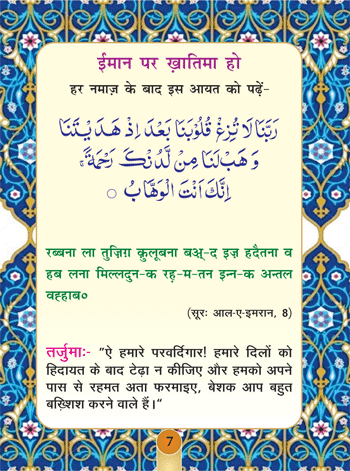 ईमान पर ख़ातिमा हो
हर नमाज़ के बाद इस आयत को पढ़ें-
رَبَّنَا لَا تُزِغْ قُلُوْبَنَا بَعْدَ اِذْ هَدَيْتَنَا
وَهَبْ لَنَا مِنْ لَّدُنْكَ رَحْمَةً ۚ
اِنَّكَ اَنْتَ الْوَهَّابُ ○
रब्बना ला तुज़िग़ क़ुलूबना बअ्-द इज़ हदैतना व
हब लना मिल्लदुन-क रह़-म-तन इन्न-क अन्तल
वह्हाब०
(सूरः आल-ए-इमरान, 8)
तर्जुमाः- "ऐ हमारे परवर्दिगार! हमारे दिलों को
हिदायत के बाद टेढ़ा न कीजिए और हमको अपने
पास से रहमत अता फरमाइए, बेशक आप बहुत
बख़्शिश करने वाले हैं।"
7